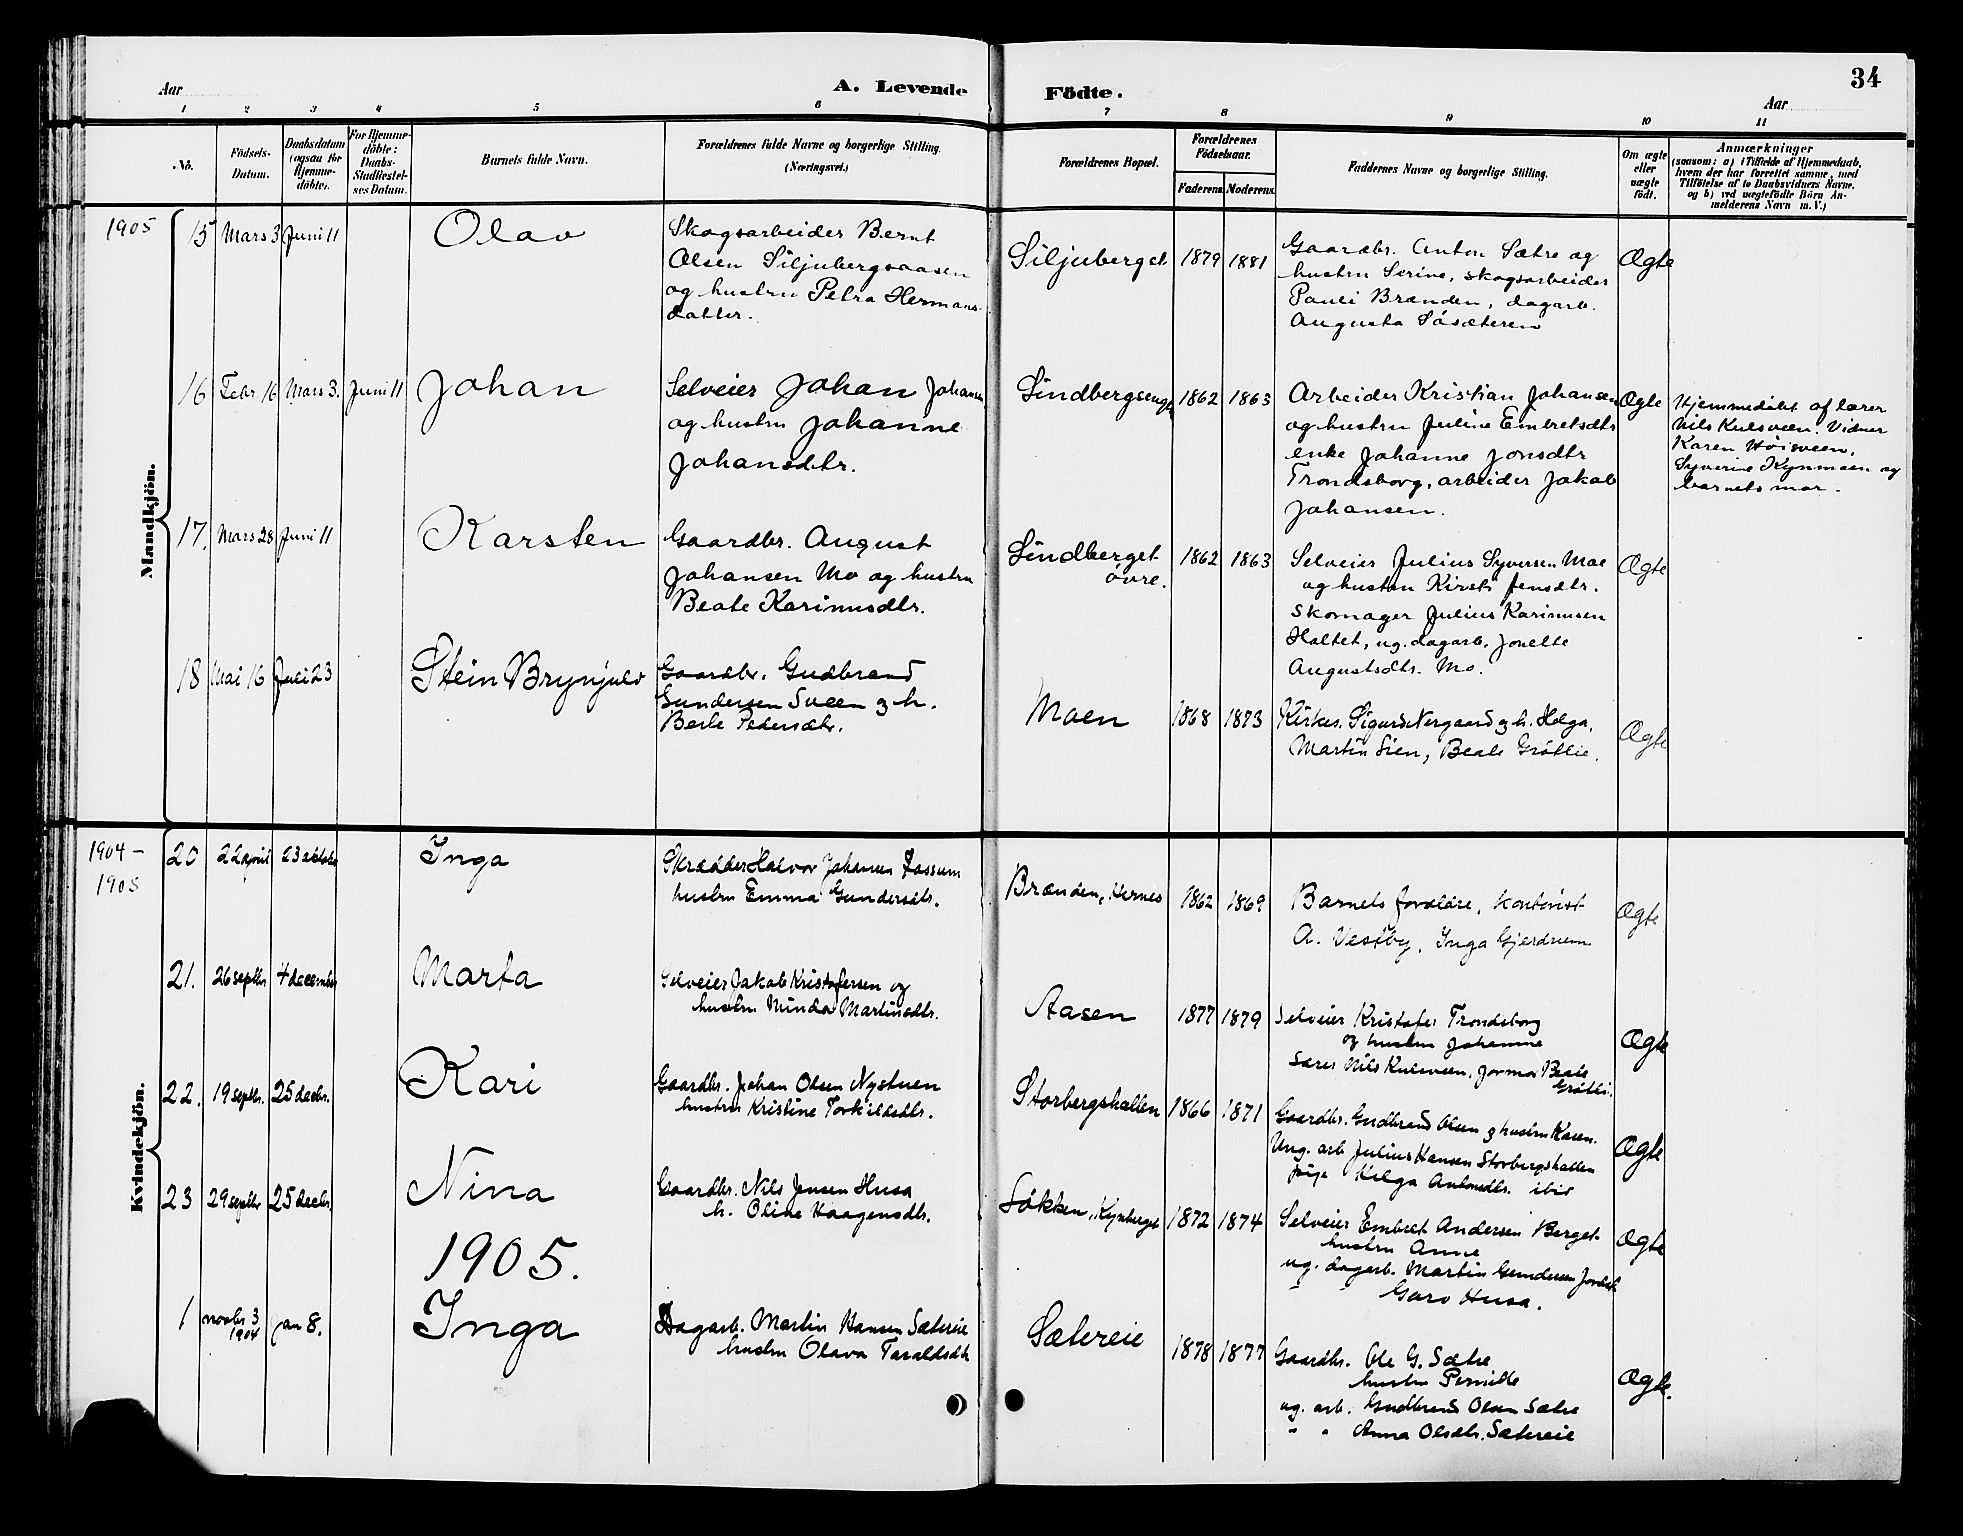 34
Aar
A. Levende Födte.
Aar
1 2 3 4 5 6 7 8 9 10 11
No.
Födsels-
Datum.
Daabsdatum
(ogsaa for
Hjemme-
döbte).
For Hjemme-
döbte:
Daabs-
Stadfæstel-
ses Datum.
Barnets fulde Navn.
Forældrenes fulde Navne og borgerlige Stilling.
(Næringsvei.)
Forældrenes Bopæl.
Forældrenes
Födselsaar.
Faderens.
Moderens.
Faddernes Navne og borgerlige Stilling.
Om ægte
eller
uægte
födt.
Anmærkninger
(saasom: a) i Tilfælde af Hjemmedaab,
hvem der har forrettet samme, med
Tilföielse af to Daabsvidners Navne.
og b) ved uægtefödte Börn An-
melderens Navn m.V.)
Mandkjön.
1905
15 Mars 3 Juni 11
Olav
Skogsarbeider Bernt
Olsen Siljubergsaasen
og hustru Petra Hermans-
datter.
Siljuberget
1879 1881
Gaardbr. Anton Sætre og
hustru Serine, skogsarbeider
Pauli Brænden, dagarb.
Augusta Såsæteren
Ægte
16 Febr. 16 Mars 3. Juni 11
Johan
Selveier Johan Johansen
og hustru Johanne
Johansdtr.
Sindbergsenga
1862 1863
Arbeider Kristian Johansen
og hustru Juline Embretsdtr
enke Johanne Jonsdtr
Trondsborg, arbeider Jakob
Johansen.
Ægte
Hjemmedöbt af lærer
Nils Kulsveen. Vidner
Karen Höisveen,
Syverine Kynmoen og
barnets mor.
17. Mars 28 Juni 11
Karsten
Gaardbr. August
Johansen Mo og hustru
Beate Karinusdtr.
Sindberget
övre.
1862 1863
Selveier Julius Syversen Moe
og hustru Kirsti Jensdtr.
Skomager Julius Karinusen
Haltet, ug. dagarb. Jonette
Augustsdtr. Mo.
Ægte
18 Mai 16 Juli 23
Stein Brynjulv
Gaardbr. Gudbrand
Gundersen Sveen og h.
Berte Pedersdtr.
Moen
1868 1873
Kirkes. Sigurd Nergaard og h. Helga,
Martin Lien, Beate Gröttlie.
Ægte
Kvindekjön.
1904 -
1905
20 22 april 23 oktober
Inga
Skrædder Halvor Johansen Fossum
hustru Emma Gundersdtr.
Brænden, Kernes
1862 1869
Barnets forældre, kontorist
A. Vestby, Inga Gjerdrum
Ægte
21. 26 septbr 4 december
Marta
Selveier Jakob Kristofersen og
hustru Minda Martinsdtr.
Aasen
1877 1879
Selveier Kristofer Trondsborg
og hustru Johanne
Lærer Nils Kulsveen, jormor Beate
Gröttli.
Ægte
22. 19 septbr. 25 decbr.
Kari
Gaardbr. Johan Olsen Nystuen
hustru Kristine Torkildsdtr.
Storbergshallen
1866 1871
Gaardbr. Gudbrand Olsen og hustru Karen.
Ung. arb Julius Hansen Storbergshallen
pige Helga Antonsdtr. ibid
Ægte
23 29 septbr 25 decbr.
Nina
Gaardbr. Nils Jensen Husa
h. Oline Haagensdtr.
Lökken, Kynberget
1872 1874
Selveier Embret Andersen Berget
hustru Anne
ug. dagarb. Martin Gundersen Jordet
Garo Husa.
Ægte
1905.
1 novbr. 3
1904 jan 8.
Inga
Dagarb. Martin Hansen Sætereie
hustru Olava Taraldsdtr
Sætereie
1878 1877
Gaardbr. Ole G. Sætre
hustru Pernille
ug. arb. Gudbrand Olsen Sætre
" " Anna Olsdtr. Sætereie
Ægte.